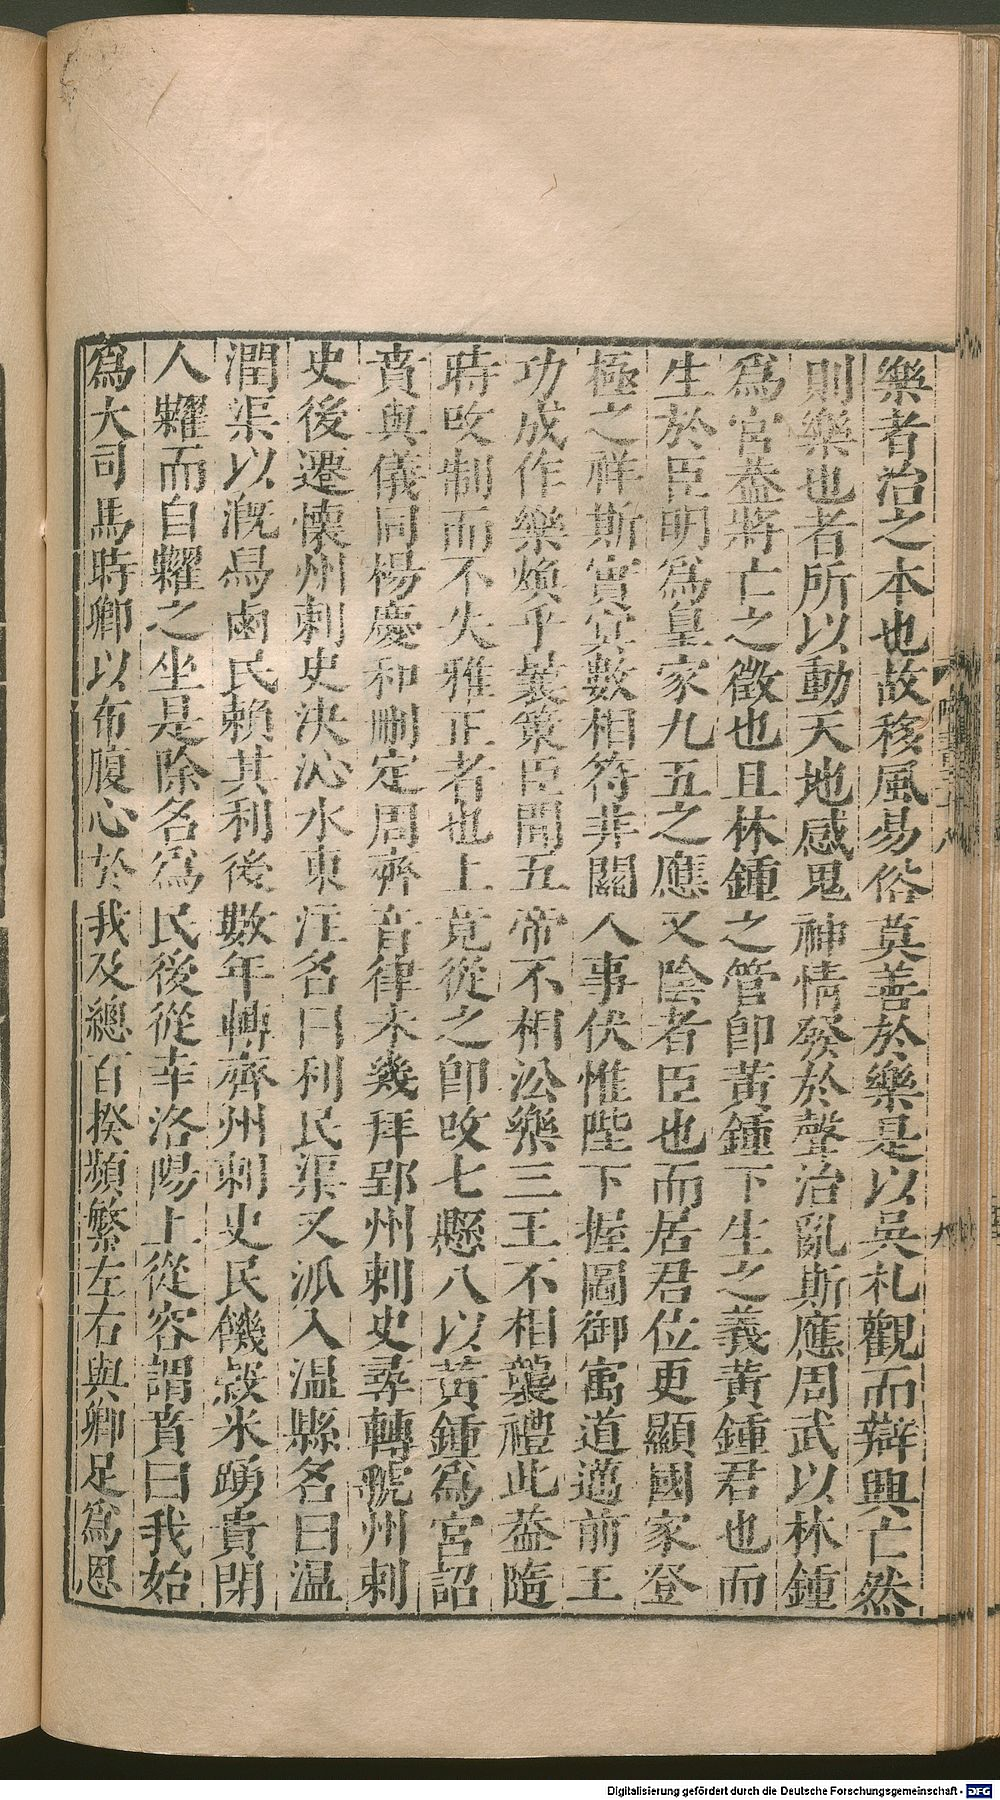 樂者治之本也故移風易俗莫善於樂是以吳札觀而辯興亡然
則樂也者所以動天地感鬼神情發於聲治亂斯應周武以林鍾
爲宮蓋將亡之徵也且林鍾之管卽黃鍾下生之義黃鍾君也而
生於臣明爲皇家九五之應又陰者臣也而居君位更顯國家登
極之祥斯實冥數相符非關人事伏惟陛下握圖御寓道邁前王
功成作樂煥乎曩策臣聞五帝不相沿樂三王不相襲禮此蓋隨
時改制而不失雅正者也上竟從之卽改七懸八以黃鍾爲宮詔
賁與儀同楊慶和刪定周齊音律未幾拜郢州刺史尋轉虢州刺
史後遷懷州刺史決沁水東注名曰利民渠又派入温縣名曰温
潤渠以溉舄鹵民賴其利後數年轉齊州刺史民饑穀米踴貴閉
人糶而自糶之坐是除名爲民後從幸洛陽上從容謂賁曰我始
爲大司馬時卿以布腹心於我及總百揆頻繁左右與卿足爲恩
Digitalisierung gefördert durch die Deutsche Forschungsgemeinschaft - DFG